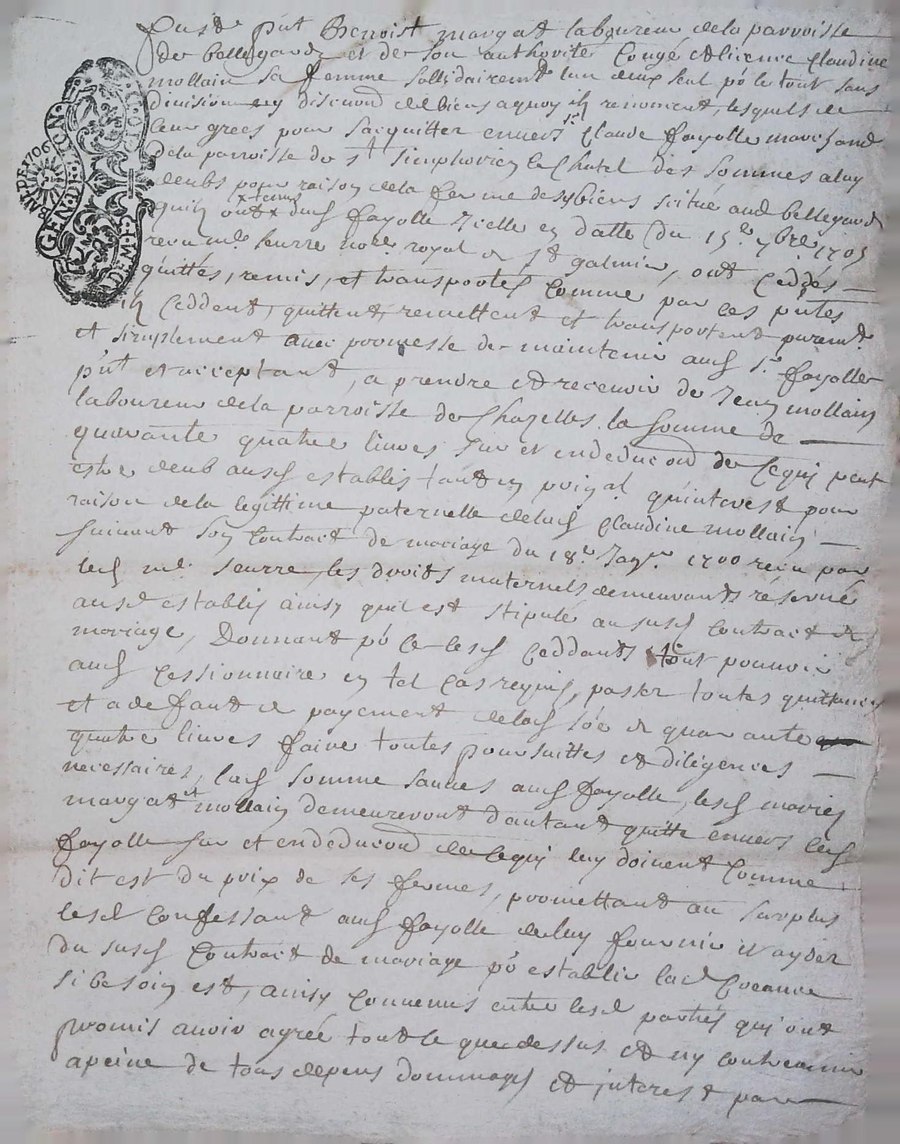 Pnt Benoist margat laboureur de la parroisse
de bellegarde et de son authorité Congé et licence Claudine
mollain sa femme sollidairemt lun deux seul po le tout sans
division ny discuond de biens a quoy ils renoncent, lesquels de
leur grées pour sacquitter envers sr Claude fayolle marchand
de la parroisse de st simphorien le Chatel des sommes a luy
deubs pour raison de la ferme des biens scitué aud bellegarde
quils ont tenus dud fayolle Icelle en datte du 15e 7bre 1705
receu me seurre nore royal a st galmier, ont ceddés
quittés, remis, et transportés comme par ces pntes
ils ceddent, quittent, remettent et transportent puremt
et simplement avec promesse de maintenir aud sr fayolle
pnt et acceptant, a prendre et recevoir de Jean mollain
laboureur de la parroisse de Chazelles la somme de
quarante quatre livres sur et en deducond de ce qui peut
estre deub ausd establis tant en prinpal quinterest pour
raison de la legittime paternelle de lad Claudine mollain
suivant son Contrait de mariage du 18e Janr 1700 receu par
led me seurre, les droits maternels demeurants réservé
ausd establis ainsy quil est stipulé au susd contrait de
mariage, Donnant po ce lesd Ceddants tout pouvoir
aud cessionnaire en tel cas requis, passer toutes quittances
et a defaut de payement de lad soe de quarante
quatre livres faire toutes poursuittes et diligences
necessaires, lad somme sauves aud fayolle, lesd mariés
margat et mollain demeureront dautant quitte envers led
fayolle sur et en deducond de ce qui luy doivent comme
dit est du prix de ses fermes, promettant au surplus
lesd Confessant aud fayolle de luy fournir et ayder
du susd Contrait de mariage po establir lad Creance
si besoin est, ainsy convenus entre lesd partiés qui ont
promis avoir agreé tout le que dessus et ny contrevenir
a peine de tous depens dommages et interest par
GEN DE LYON
DE M. F. S.